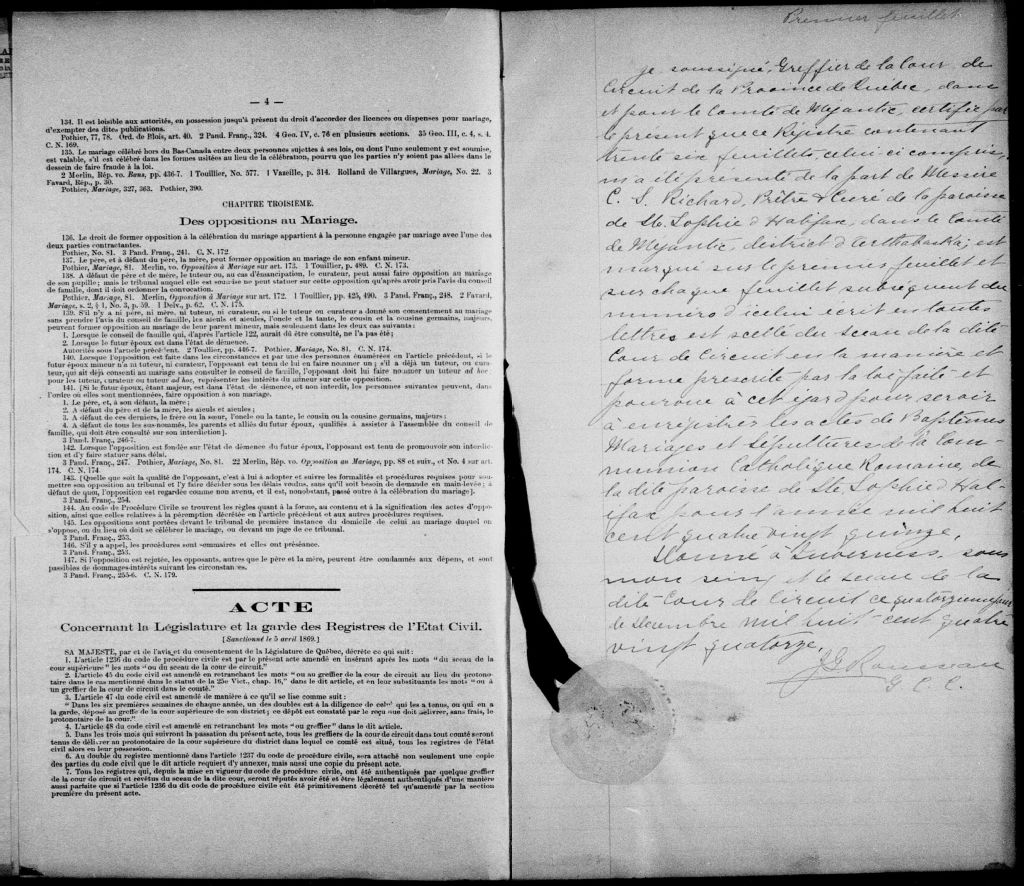 — 4 —
134. Il est loisible aux autorités, en possession jusqu'à présent du droit d'accorder des licences ou dispenses pour mariage,
d'exempter des dites publications.
Pothier, 77, 78. Ord. de Blois, art. 40. 2 Pand. Franç., 324. 4 Geo. IV, c. 76 en plusieurs sections. 35 Geo. III, c. 4, s. 4.
C. N. 169.
135. Le mariage célébré hors du Bas-Canada entre deux personnes sujettes à ses lois, ou dont l'une seulement y est soumise,
est valable, s'il est célébré dans les formes usitées au lieu de la célébration, pourvu que les parties n'y soient pas allées dans le
dessein de faire fraude à la loi.
2 Merlin, Rép. vo. Bans, pp. 436-7. 1 Touillier, No. 577. 1 Vazeille, p. 314. Rolland de Villargues, Mariage, No. 22. 3
Favard, Rép., p. 30.
Pothier, Mariage, 327, 363. Pothier, 390.
CHAPITRE TROISIÉME.
Des oppositions au Mariage.
136. Le droit de former opposition à la célébration du mariage appartient à la personne engagée par mariage avec l'une des
deux parties contractantes.
Pothier, No. 81. 3 Pand. Franç., 241. C. N. 172.
137. Le père, et à défaut du père, la mère, peut former opposition au mariage de son enfant mineur.
Pothier, Mariage, 81. Merlin, vo. Opposition à Mariage sur art. 173. 1 Touillier, p. 489. C. N. 174.
138. A défaut de père et de mère, le tuteur ou, au cas d'émancipation, le curateur, peut aussi faire opposition au mariage
de son pupille; mais le tribunal auquel elle est soumise ne peut statuer sur cette opposition qu'après avoir pris l'avis du conseil
de famille, dont il doit ordonner la convocation.
Pothier, Mariage, 81. Merlin, Opposition à Mariage sur art. 172. 1 Touillier, pp. 425, 490. 3 Pand. Franç., 248. 2 Favard,
Mariage, s. 2, § 1, No. 3, p. 59. 1 Delv., p. 62. C. N. 175.
139. S'il n'y a ni père, ni mère, ni tuteur, ni curateur, ou si le tuteur ou curateur a donné son consentement au mariage
sans prendre l'avis du conseil de famille, les aïeuls et aïeules, l'oncle et la tante, le cousin et la cousine germains, majeurs,
peuvent former opposition au mariage de leur parent mineur, mais seulement dans les deux cas suivants:
1. Lorsque le conseil de famille qui, d'après l'article 122, aurait dû être consulté, ne l'a pas été;
2. Lorsque le futur époux est dans l'état de démence.
Autorités sous l'article précédent. 2 Touillier, pp. 446-7. Pothier, Mariage, No. 81. C. N. 174.
140. Lorsque l'opposition est faite dans les circonstances et par une des personnes énumérées en l'article précédent, si le
futur époux mineur n'a ni tuteur, ni curateur, l'opposant est tenu de lui en faire nommer un; s'il a déjà un tuteur, ou cura-
teur, qui ait déjà consenti au mariage sans consulter le conseil de famille, l'opposant doit lui faire nommer un tuteur ad hoc.
pour les tuteur, curateur ou tuteur ad hoc, représenter les intérêts du mineur sur cette opposition.
141. [Si le futur époux, étant majeur, est dans l'état de démence, et non interdit, les personnes suivantes peuvent, dans
l'ordre où elles sont mentionnées, faire opposition à son mariage.
1. Le père, et, à son défaut, la mère;
2. A défaut du père et de la mère, les aïeuls et aïeules;
3. A défaut de ces derniers, le frère ou la sœur, l'oncle ou la tante, le cousin ou la cousine germains, majeurs;
4. A défaut de tous les sus-nommés, les parents et alliés du futur époux, qualifiés à assister à l'assemblée du conseil de
famille, qui doit être consulté sur son interdiction].
3 Pand. Franç., 246-7.
142. Lorsque l'opposition est fondée sur l'état de démence du futur époux, l'opposant est tenu de promouvoir son interdic-
tion et d'y faire statuer sans délai.
3 Pand. Franç., 247. Pothier, Mariage, No. 81. 22 Merlin, Rép. vo. Opposition au Mariage, pp. 88 et suiv., et No. 4 sur art.
174. C. N. 174.
143. [Quelle que soit la qualité de l'opposant, c'est à lui à adopter et suivre les formalités et procédures requises pour sou-
mettre son opposition au tribunal et l'y faire décider sous les délais voulus, sans qu'il soit besoin de demande en main-levée; à
défaut de quoi, l'opposition est regardée comme non avenu, et il est, nonobstant, passé outre à la célébration du mariage].
3 Pand. Franç., 254.
144. Au code de Procédure Civile se trouvent les règles quant à la forme, au contenu et à la signification des actes d'oppo-
sition, ainsi que celles relatives à la péremption décrétée en l'article précédent et aux autres procédures requises.
145. Les oppositions sont portées devant le tribunal de première instance du domicile de celui au mariage duquel on
s'oppose, ou du lieu où doit se célébrer le mariage, ou devant un juge de ce tribunal.
3 Pand. Franç., 253.
146. S'il y a appel, les procédures sont sommaires et elles ont préséance.
3 Pand. Franç., 253.
147. Si l'opposition est rejetée, les opposants, autres que le père et la mère, peuvent être condamnés aux dépens, et sont
passibles de dommages-intérêts suivant les circonstances.
3 Pand. Franç., 255-6. C. N. 179.
ACTE
Concernant la Législature et la garde des Registres de l'Etat Civil.
[Sanctionné le 5 avril 1869.]
SA MAJESTE, par et de l'avis et du consentement de la Législature de Québec, décrète ce qui suit:
1. L'article 1236 du code de procédure civile est par le présent acte amendé en insérant après les mots "du sceau de la
cour supérieure" les mots "ou du sceau de la cour de circuit."
2. L'article 45 du code civil est amendé en retranchant les mots "ou au greffier de la cour de circuit au lieu du protono-
taire dans le cas mentionné dans le statut de la 25e Vict., chap. 16," dans le dit article, et en leur substituant les mots "ou à
un greffier de la cour de circuit dans le comté."
3. L'article 47 du code civil est amendé de manière à ce qu'il se lise comme suit:
"Dans les six premières semaines de chaque année, un des doubles est à la diligence de celui qui les a tenus, ou qui en a
la garde, déposé au greffe de la cour supérieure de son district; ce dépôt est constaté par le reçu que doit délivrer, sans frais, le
protonotaire de la cour."
4. L'article 48 du code civil est amendé en retranchant les mots "ou greffier" dans le dit article.
5. Dans les trois mois qui suivront la passation du présent acte, tous les greffiers de la cour de circuit dans tout comté seront
tenus de délivrer au protonotaire de la cour supérieure du district dans lequel ce comté est situé, tous les registres de l'état
civil alors en leur possession.
6. Au double du registre mentionné dans l'article 1237 du code de procédure civile, sera attaché non seulement une copie
des parties du code civil que le dit article requiert d'y annexer, mais aussi une copie du présent acte.
7. Tous les registres qui, depuis la mise en vigueur du code de procédure civile, ont été authentiqués par quelque greffier
de la cour de circuit et revêtus du sceau de la dite cour, seront réputés avoir été et être légalement authentiqués d'une manière
aussi parfaite que si l'article 1236 du dit code de procédure civile eût été primitivement décrété tel qu'amendé par la section
première du présent acte.
Premier feuillet
Je soussigné, Greffier de la Cour de
Circuit de la Province de Québec, dans
et pour le Comté de Mégantic, certifie que
le présent que ce Régistre contenant
trente six feuillets, celui-ci compris,
m'a été présenté de la part de Messire
C. S. Richard, Prêtre & Curé de la paroisse
de Ste Sophie d'Halifax, dans le Comté
de Mégantic, district d'Arthabaska; est
marqué sur le premier feuillet et
sur chaque feuillet subséquent du
numéro d'icelui écrit en toutes
lettres et scellé du Sceau de la dite
Cour de Circuit en la manière et
forme prescrite par la loi faite et
pourvue à cet égard pour servir
à enregistrer les actes de Baptêmes
Mariages et Sépultures de la Com-
munion Catholique Romaine, de
la dite paroisse de Ste Sophie d'Hal-
ifax pour l'année mil huit
cent quatre vingt quinze.
Donné à Inverness, sous
mon seing et le sceau de la
dite Cour de Circuit ce quatorzième jour
de Décembre mil huit-cent quatre
vingt quatorze.
JG Rousseau
G. C. C.